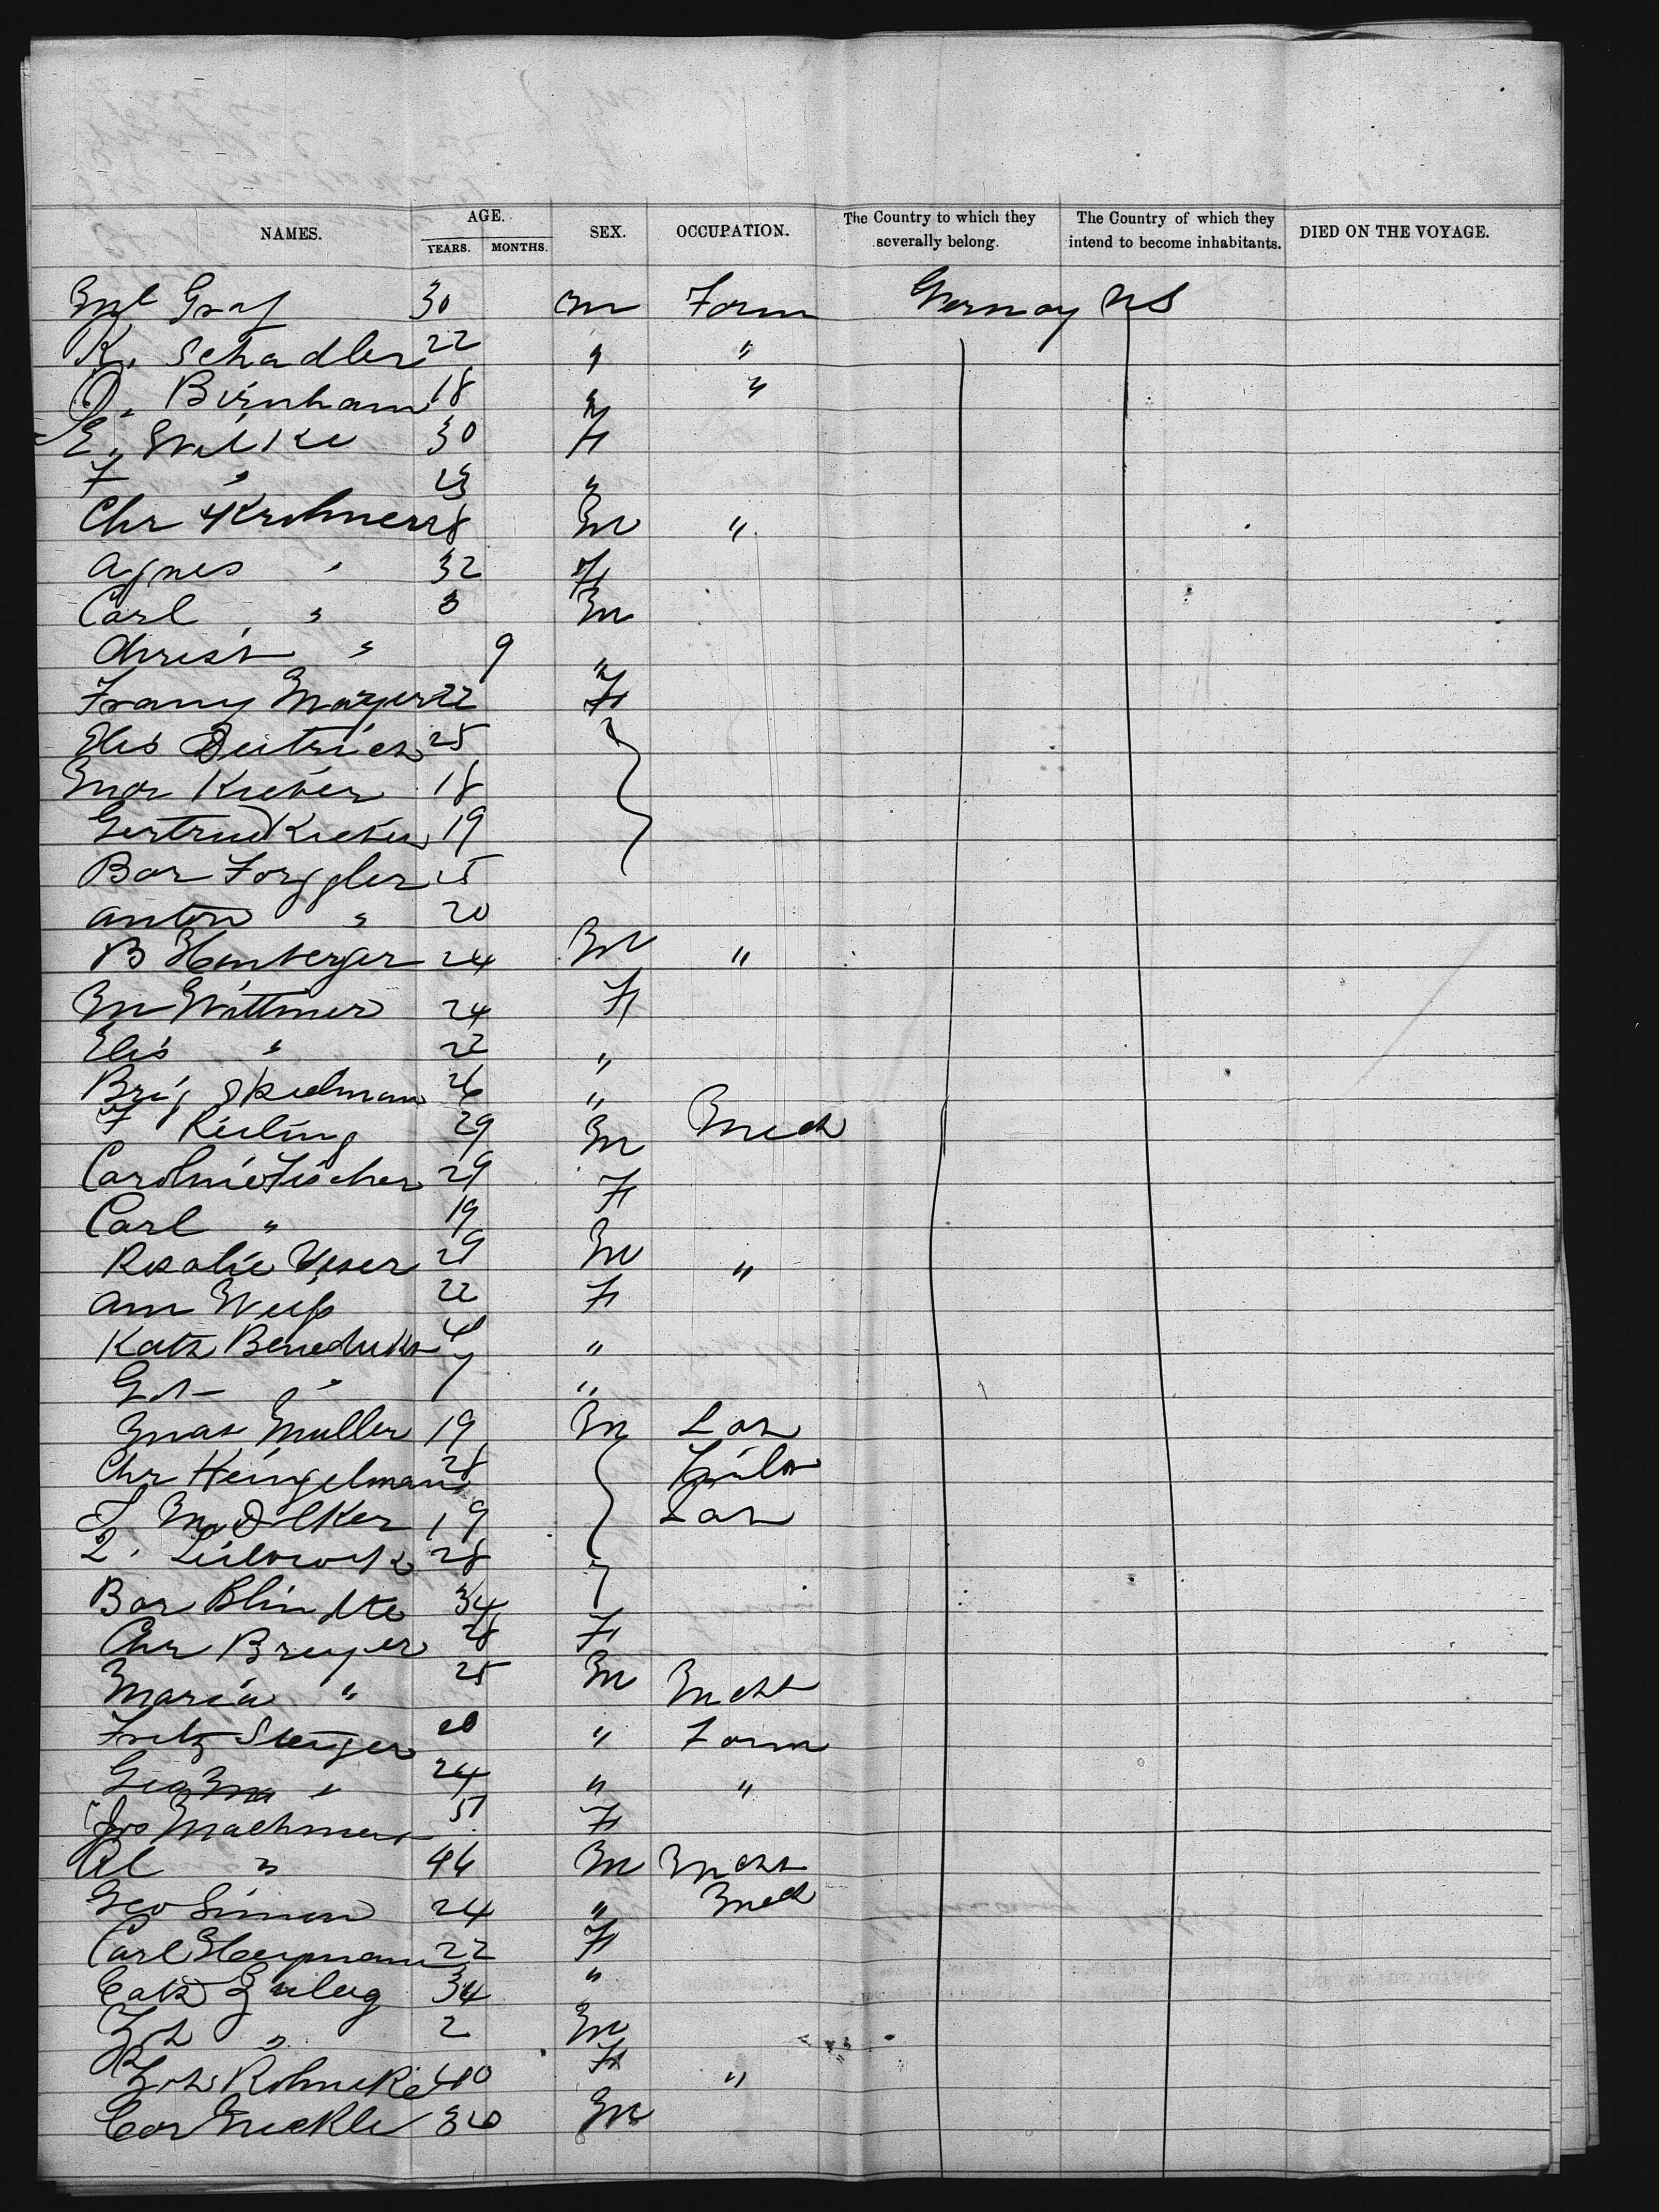 NAMES. AGE. YEARS. MONTHS. SEX. OCCUPATION. The Country to which they severally belong. The Country of which they intend to become inhabitants. DIED ON THE VOYAGE.
Graf 30 m Farm Germay US
K. Schadler 22 " "
O. Birnham 18 " "
E. Wilke 30 F
F " 23 "
Chr Krohmer 28 M "
Agnes " 32 F
Carl " 3 M
Christ " 9 "
Franz Mayer 22 F
Elis Deitrich 25
Mar Kieber 18
Gertrud Kieber 19
Bar Forggler 25
Anton " 20
B Hemberger 24 M "
M Wittmer 24 F
Elis " 22 "
Brig 26 "
F Keiling 29 M Mech
Caroline Fischer 29 F
Carl " 19
Rosalie 29 M "
Ann Weiß 22 F
Kath Benedickt "
" 7 "
Max Muller 19 M Lab
Chr Heingelman 28
19 Lab
L. 28
Bar 34
Chr Breyer 28 F
Maria " 25 M Mcht
Fritz Steiger 20 " Farm
Geo " 24 " "
Jos Machmer F
Al " 46 M Mcht
Geo Simon 24 " Mech
Carl Heipman 22 F
Cath 34 "
Joh " 2 M
Joh Rohneke 40 F "
Car 30 M